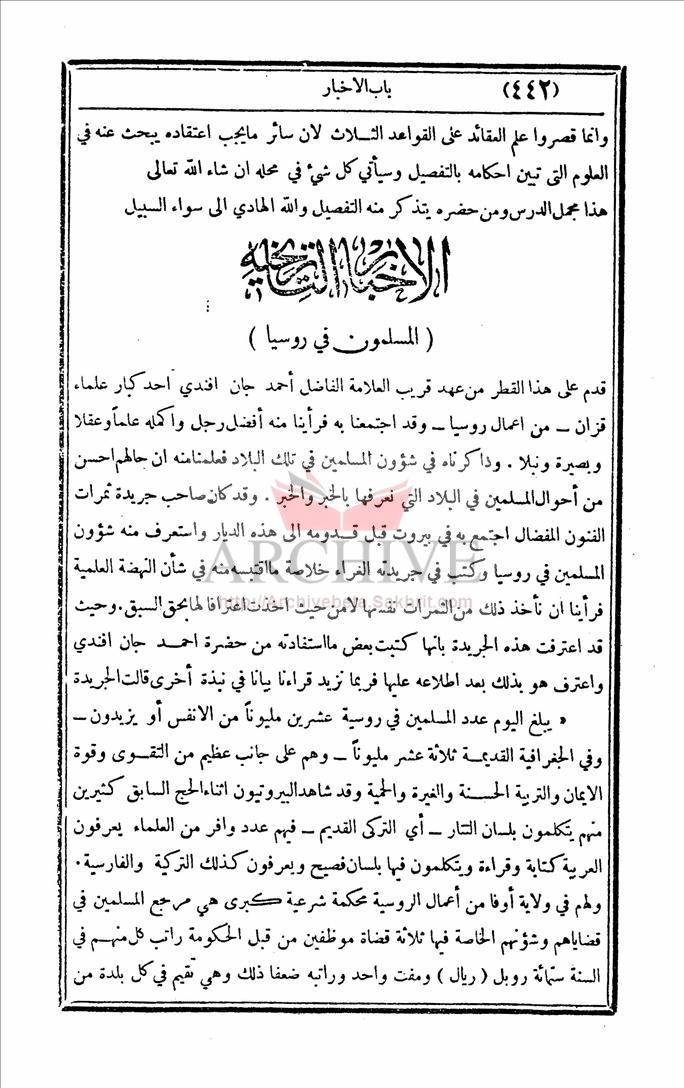 (٤٤٢) باب الاخبار
وانما قصروا علم العقائد على القواعد الثلاث لان سائر مايجب اعتقاده يبحث عنه في
العلوم التى تبين احكامه بالتفصيل وسيأتي كل شيئ في محله ان شاء الله تعالى
هذا مجمل الدرس ومن حضره يتذكر منه التفصيل والله الهادي الى سواء السبيل
الاخبار التاريخية
( المسلمون في روسيا )
قدم على هذا القطر من عهد قريب العلامة الفاضل أحمد جان افندي احد كبار علماء
قزان ـ من اعمال روسيا ـ وقد اجتمعنا به فرأينا منه أفضل رجل واكمله علماً وعقلا
وبصيرة ونبلا . وذاكرناه في شؤون المسلمين في تلك البلاد فعلمنامنه ان حالهم احسن
من أحوال المسلمين في البلاد التي نعرفها بالخُبر والخبر . وقدكان صاحب جريدة ثمرات
الفنون المفضال اجتمع به في بيروت قبل قدومه الى هذه الديار واستعرف منه شؤون
المسلمين في روسيا وكتب في جريدته الغراء خلاصة مااقتبسه منه في شأن النهضة العلمية
فرأينا ان نأخذ ذلك من الثمرات نفسها لامن حيث اخذت اعترافا لها بحق السبق . وحيث
قد اعترفت هذه الجريدة بانها كتبت بعض مااستفادته من حضرة احمد جان افندي
واعترف هو بذلك بعد اطلاعه عليها فربما نزيد قراءنا بيانا في نبذة أخرى قالت الجريدة
« يبلغ اليوم عدد المسلمين في روسية عشرين مليوناً من الانفس أو يزيدون ـ
وفي الجغرافية القديمة ثلاثة عشر مليوناً ـ وهم على جانب عظيم من التقوى وقوة
الايمان والتربية الحسنة والغيرة والحمية وقد شاهد البيروتيون اثناء الحج السابق كثيرين
منهم يتكلمون بلسان التتار ـ أي التركى القديم ـ فيهم عدد وافر من العلماء يعرفون
العربية كتابة وقراءة ويتكلمون فيها بلسان فصيح ويعرفون كذلك التركية والفارسية .
ولهم في ولاية أوفا من أعمال الروسية محكمة شرعية كبرى هي مرجع المسلمين في
قضاياهم وشؤنهم الخاصة فيها ثلاثة قضاة موظفين من قبل الحكومة راتب كل منهم في
السنة ستمائة روبل ( ريال ) ومفت واحد وراتبه ضعفا ذلك وهي تقيم في كل بلدة من
ARCHIVE
http://Archivebeta.Sakhrit.com